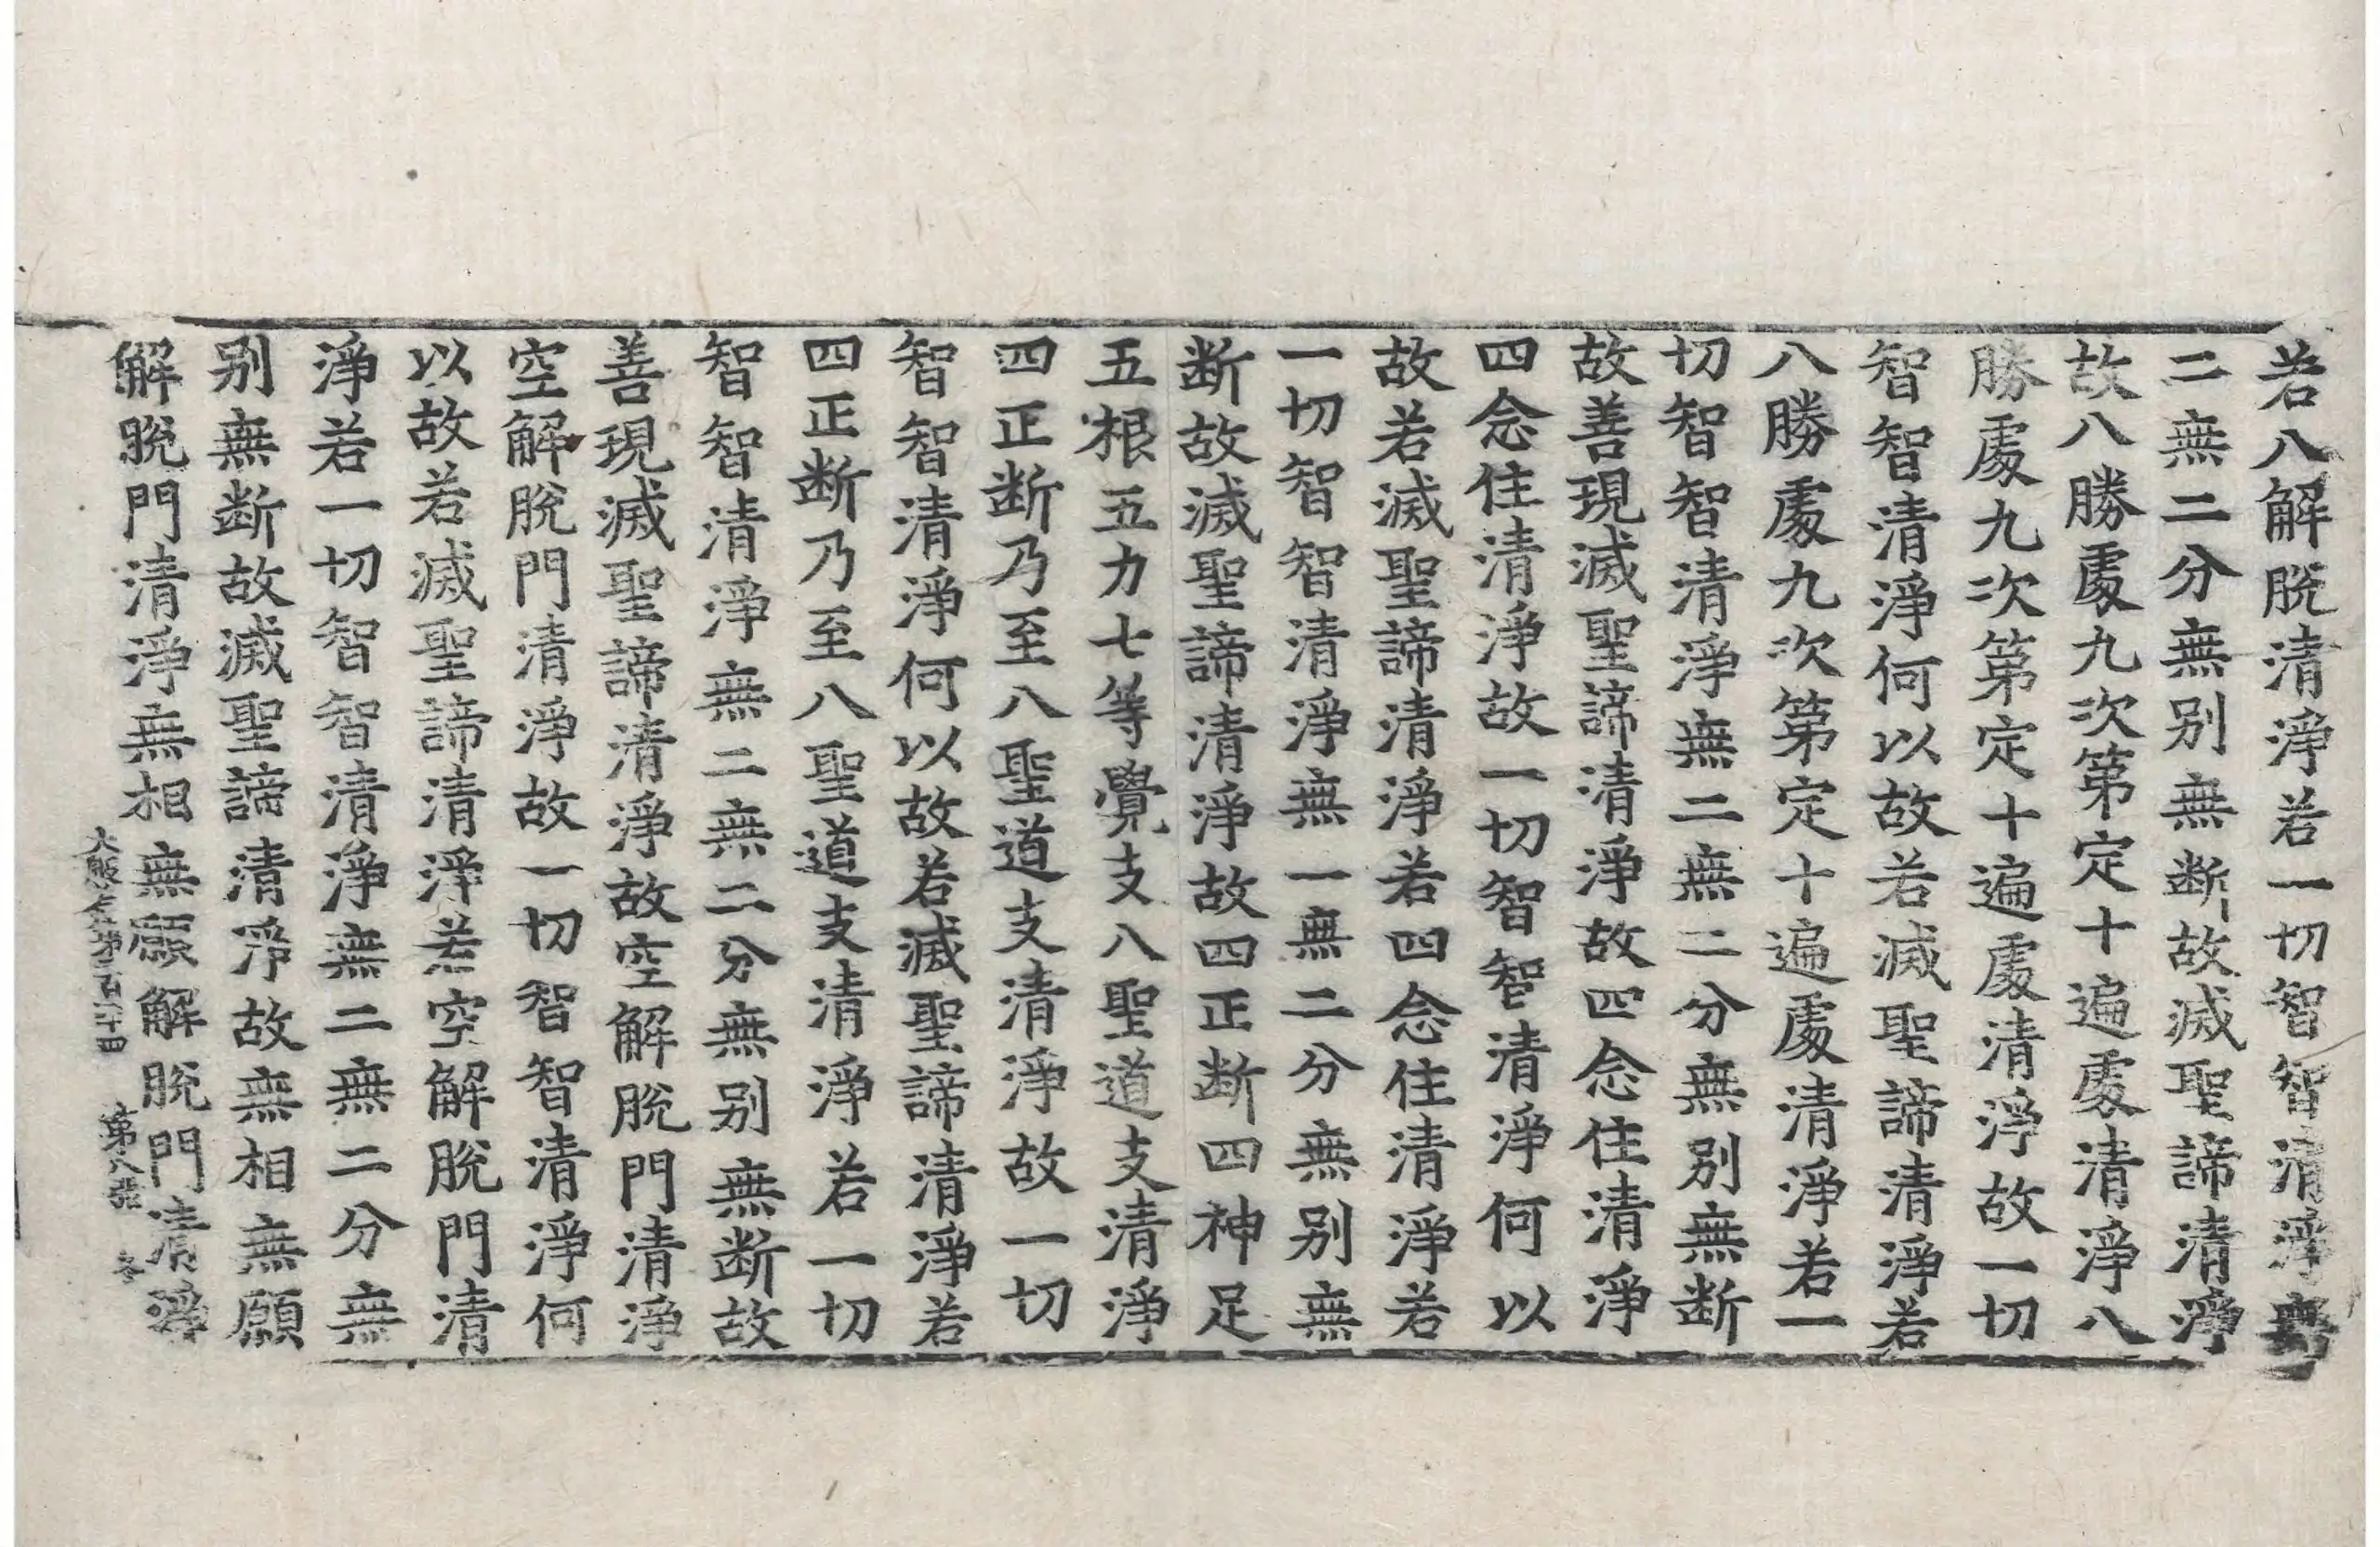 若八解脫清淨若一切智智清淨無
二無二分無别無断故滅聖諦清淨
故八勝處九次第定十遍處清淨八
勝處九次第定十遍處清淨故一切
智智清淨何以故若滅聖諦清淨若
八勝處九次第定十遍處清淨若一
切智智清淨無二無二分無别無断
故善現滅聖諦清淨故四念住清淨
四念住清淨故一切智智清淨何以
故若滅聖諦清淨若四念住清淨若
一切智智清淨無一無二分無别無
断故滅聖諦清淨故四正断四神足
五根五力七等覺支八聖道支清淨
四正断乃至八聖道支清淨故一切
智智清淨何以故若滅聖諦清淨若
四正断乃至八聖道支清淨若一切
智智清淨無二無二分無别無断故
善現滅聖諦清淨故空解脫門清淨
空解脫門清淨故一切智智清淨何
以故若滅聖諦清淨若空解脫門清
淨若一切智智清淨無二無二分無
别無断故滅聖諦清淨故無相無願
解脫門清淨無相無願解脫門清淨
大般若第二百三十四 第八張